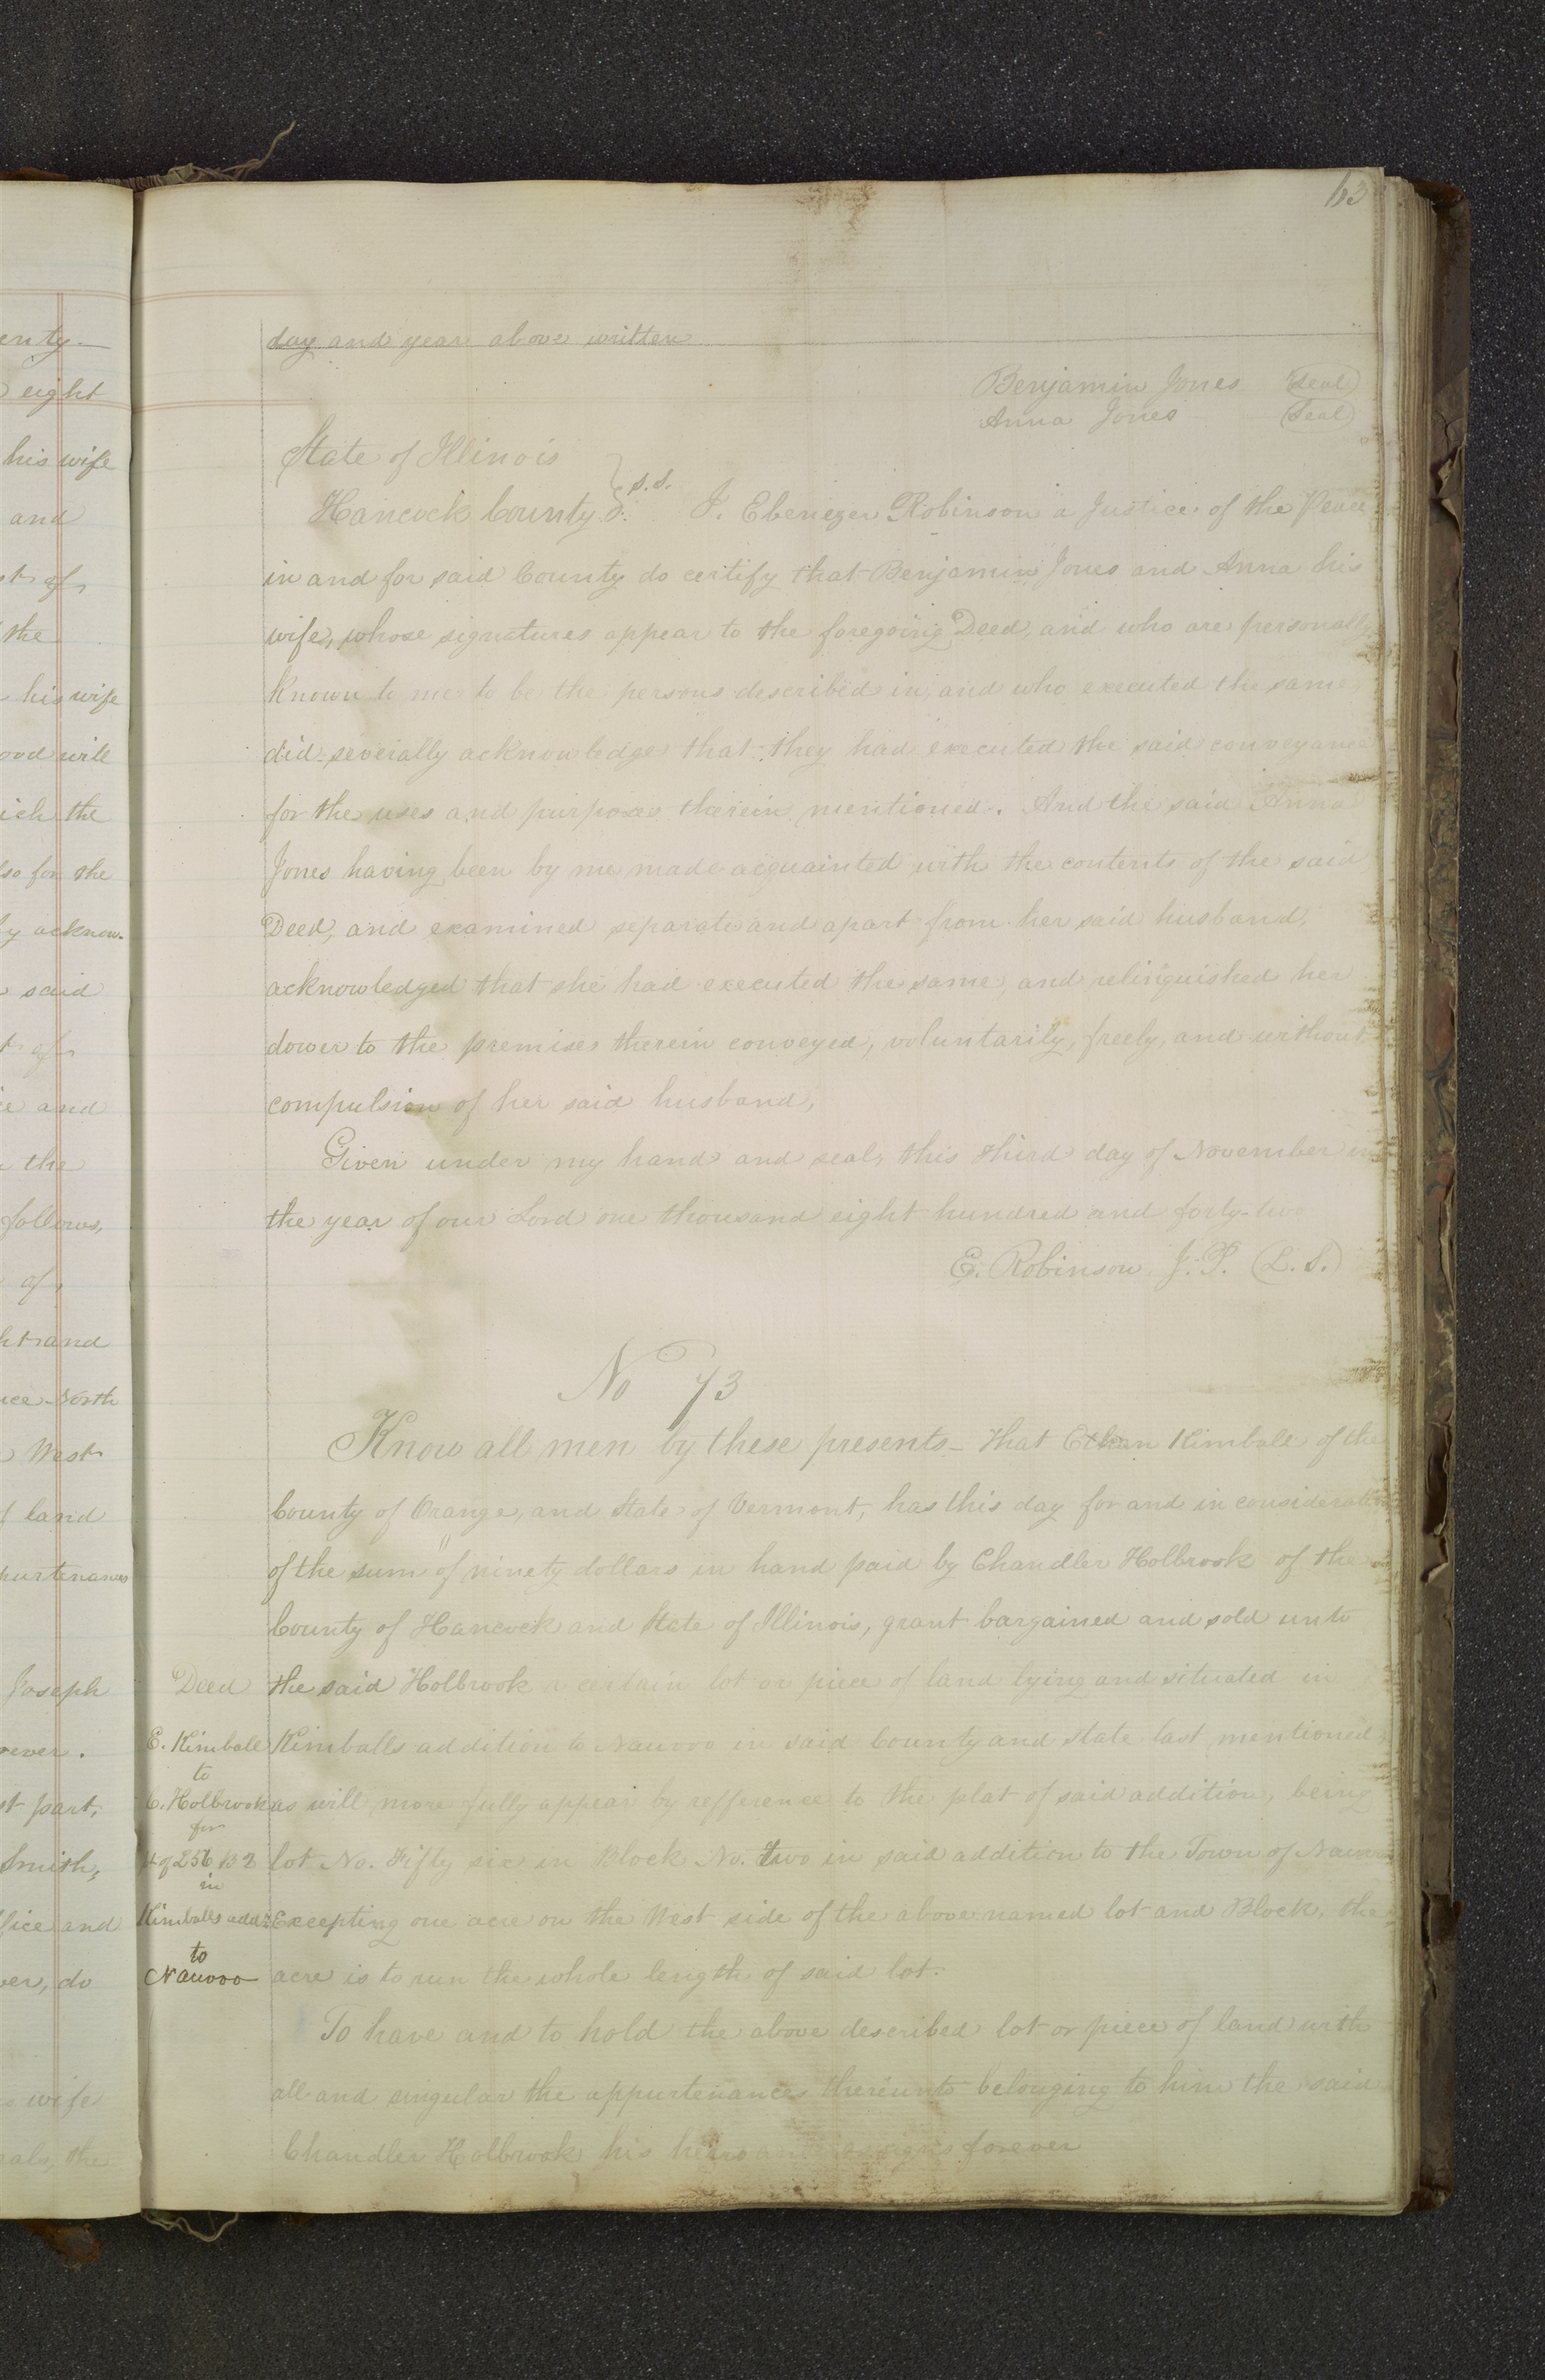 63
day and year above written
Benjamin Jones (Seal)
Anna Jones (Seal)
State of Illinois
Hancock County } s.s. I. Ebenezer Robinson a Justice of the Peace
in and for said County do certify that Benjamin Jones and Anna his
wife, whose signatures appear to the foregoing Deed, and who are personally
known to me to be the persons described in, and who executed the same,
did severally acknowledge that they had executed the said conveyance
for the uses and purposes therein mentioned. And the said Anna
Jones having been by me made acquainted with the contents of the said
Deed, and examined separate and apart from her said husband,
acknowledged that she had executed the same, and relinquished her
dower to the premises therein conveyed, voluntarily, freely, and without
compulsion of her said husband,
Given under my hand and seal, this third day of November in
the year of our Lord one thousand eight hundred and forty-two
E. Robinson J. P. (L. S.)
No 73
Know all men by these presents - that Ethan Kimball of the
County of Orange, and State of Vermont, has this day for and in consideration
of the sum of ninety dollars in hand paid by Chandler Holbrook of the
County of Hancock and State of Illinois, grant bargained and sold unto
the said Holbrook a certain lot or piece of land lying and situated in
Kimballs addition to Nauvoo in said County and state last mentioned,
as will more fully appear by refference to the plat of said addition, being
lot No. Fifty six in Block No. two in said addition to the Town of Nauvoo
Excepting one acre on the West side of the above named lot and Block, the
acre is to run the whole length of said lot.
To have and to hold the above described lot or piece of land with
all and singular the appurtenances thereunto belonging to him the said
Chandler Holbrook his heirs and assigns forever
Deed
E. Kimball
to
C. Holbrook
for
56 B 2
in
Kimballs add:
to
Nauvoo
enty-
eight
his wife
and
of
the
his wife
ood will
ich the
so for the
ly acknow-
said
of
ce and
the
follows,
of,
ht and
nce North
West
land
purtenances
Joseph
rever.
st part,
Smith,
ffice and
ver, do
wife
eals, the